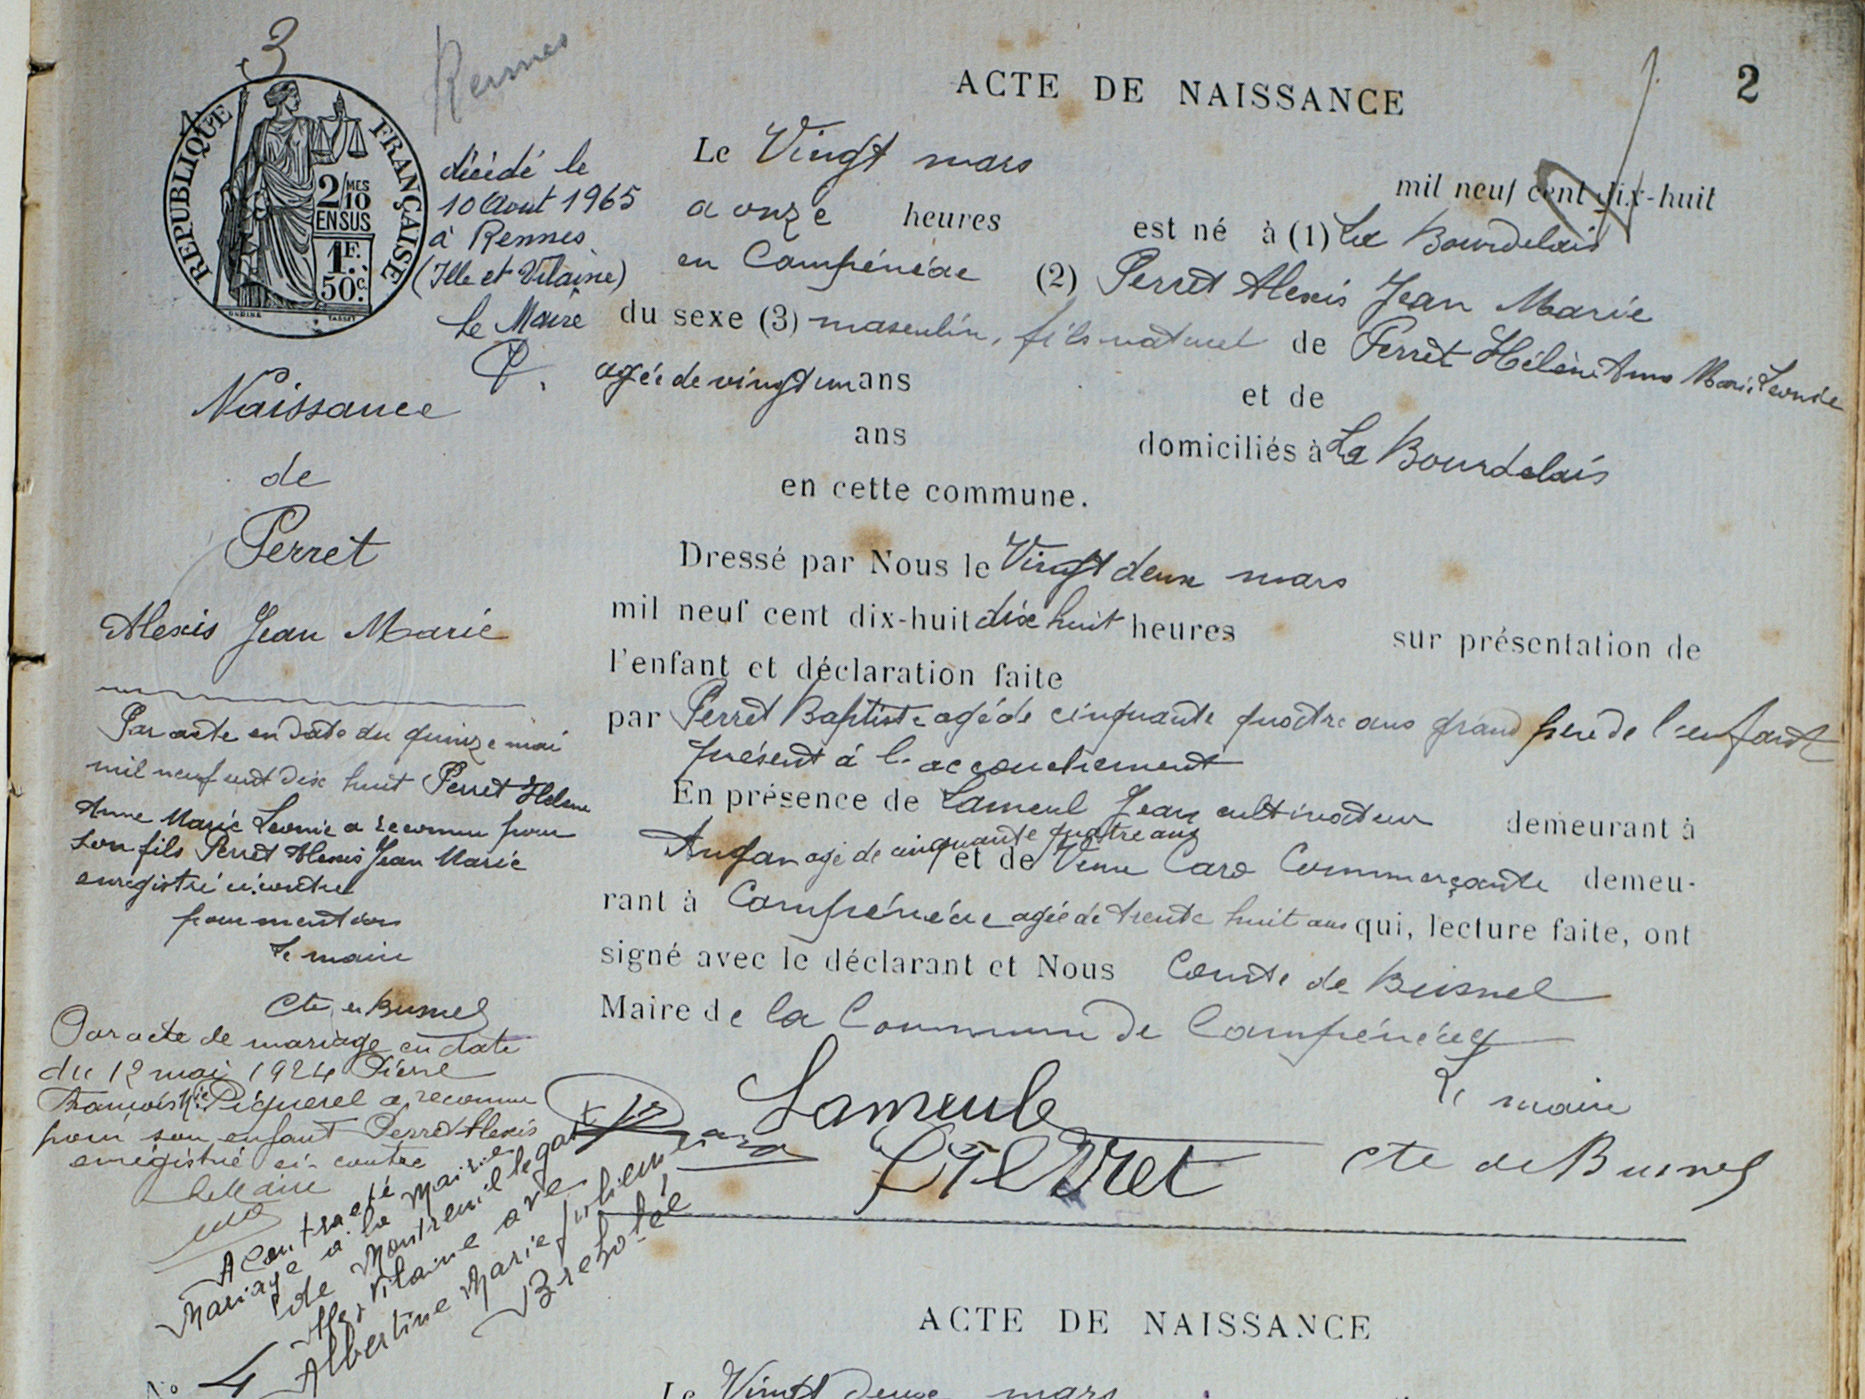 3
Rennes
RÉPUBLIQUE FRANÇAISE
2/10 MES
EN SUS
1F.
50c.
décédé le
10 Aout 1965
à Rennes
(Ille et Vilaine)
Le Maire
Naissance
de
Perret
Alexis Jean Marie
Par acte en date du quinze mai
mil neuf cent dix huit Perret Helene
Anne Marie Leonie a reconnu pour
son fils Perret Alexis Jean Marie
enregistré ci-contre
pour mention
Le maire
Cte de Busnel
Par acte de mariage en date
du 12 mai 1924 Pierre
François Mie Piquerel a reconnu
pour son enfant Perret Alexis
enregistré ci-contre
Le Maire
A contracté
Mariage à la Mairie
de Montreuil le gast
Ille & Vilaine avec
Albertine Marie Julienne
Breholée
No 4
2
ACTE DE NAISSANCE
Le Vingt mars mil neuf cent dix-huit
a onze heures est né à (1) La Bourdelais
en Campénéac (2) Perret Alexis Jean Marie
du sexe (3) masculin, fils naturel de Perret Hélène Anne Marie Leonie
agée de vingt un ans et de
ans domiciliés à La Bourdelais
en cette commune.
Dressé par Nous le Vingt deux mars
mil neuf cent dix-huit dix huit heures sur présentation de
l'enfant et déclaration faite
par Perret Baptiste agé de cinquante quatre ans grand père de l'enfant
présent à l'accouchement
En présence de Lameul Jean cultivateur demeurant à
Augan agé de cinquante quatre ans et de Veuve Caro Commerçante demeu-
rant à Campénéac agée de trente huit ans qui, lecture faite, ont
signé avec le déclarant et Nous Comte de Busnel
Maire de la Commune de Campénéac
Le maire
Lameule
Perret
Cte de Busnel
ACTE DE NAISSANCE
Le Vingt deux mars